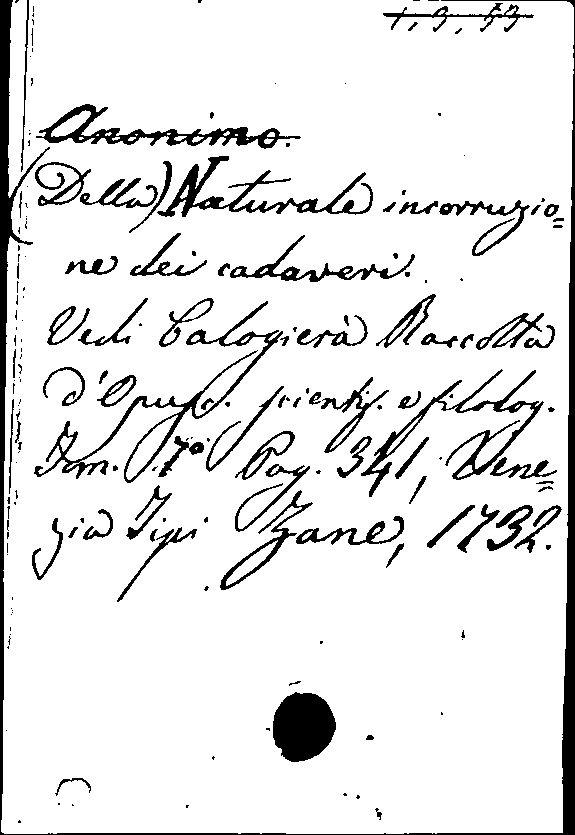 1, 3, 53
Anonimo.
(Della) Naturale incorruzio=
ne dei cadaveri.
Vedi Calogierà Raccolta
d'Opusc. scientif. e filolog.
Tom. 7º Pag. 341, Vene=
zia Tipi Zane, 1732.